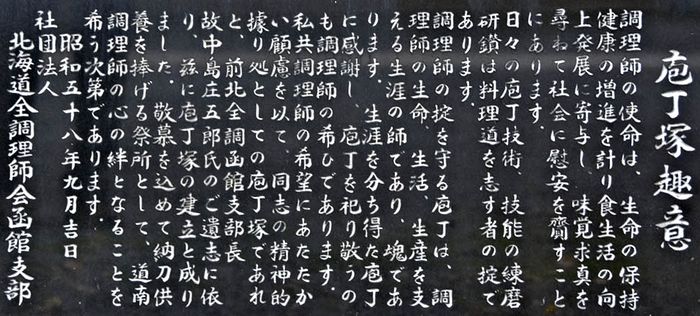 庖丁塚趣意
調理師の使命は、生命の保持
健康の増進を計り食生活の向
上発展に寄与し、味覚求真を
尋ねて社会に慰安を齎すこと
にあります。
日々の庖丁技術、技能の練磨
研鑚は料理道を志す者の掟で
あります。
調理師の掟を守る庖丁は、調
理師の生命、生活、生産を支
える生涯の師であり、塊であ
ります。生涯を分ち得た庖丁
に感謝し、庖丁を祀り敬うの
も調理師の希ひであります。
私共調理師の希望にあたたか
い顧慮を以て、同志の精神的
據り処としての庖丁塚であれ
と、前北全調函館支部長
故中島庄五郎氏のご遺志に依
り、茲に庖丁塚の建立と成り
ました。敬慕を込めて納刀供
養を捧げる祭所として、道南
調理師の心の絆となることを
希う次第であります。
昭和五十八年九月吉日
社団法人
北海道全調理師会函館支部